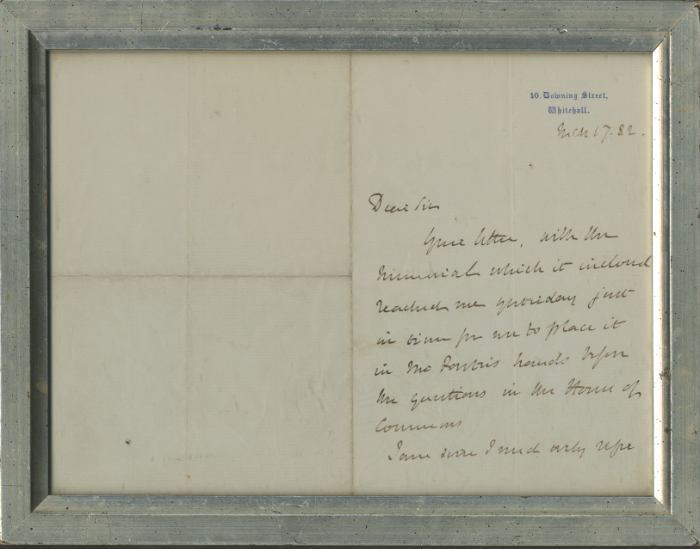 10, Downing Street,
Whitehall.
Mch 17. 82.
Dear Sir
Your letter, with the
memorial which it inclosed
reached me yesterday just
in time for me to place it
in Mr Forster's hands before
the questions in the House of
Commons
I am sure I need only refer